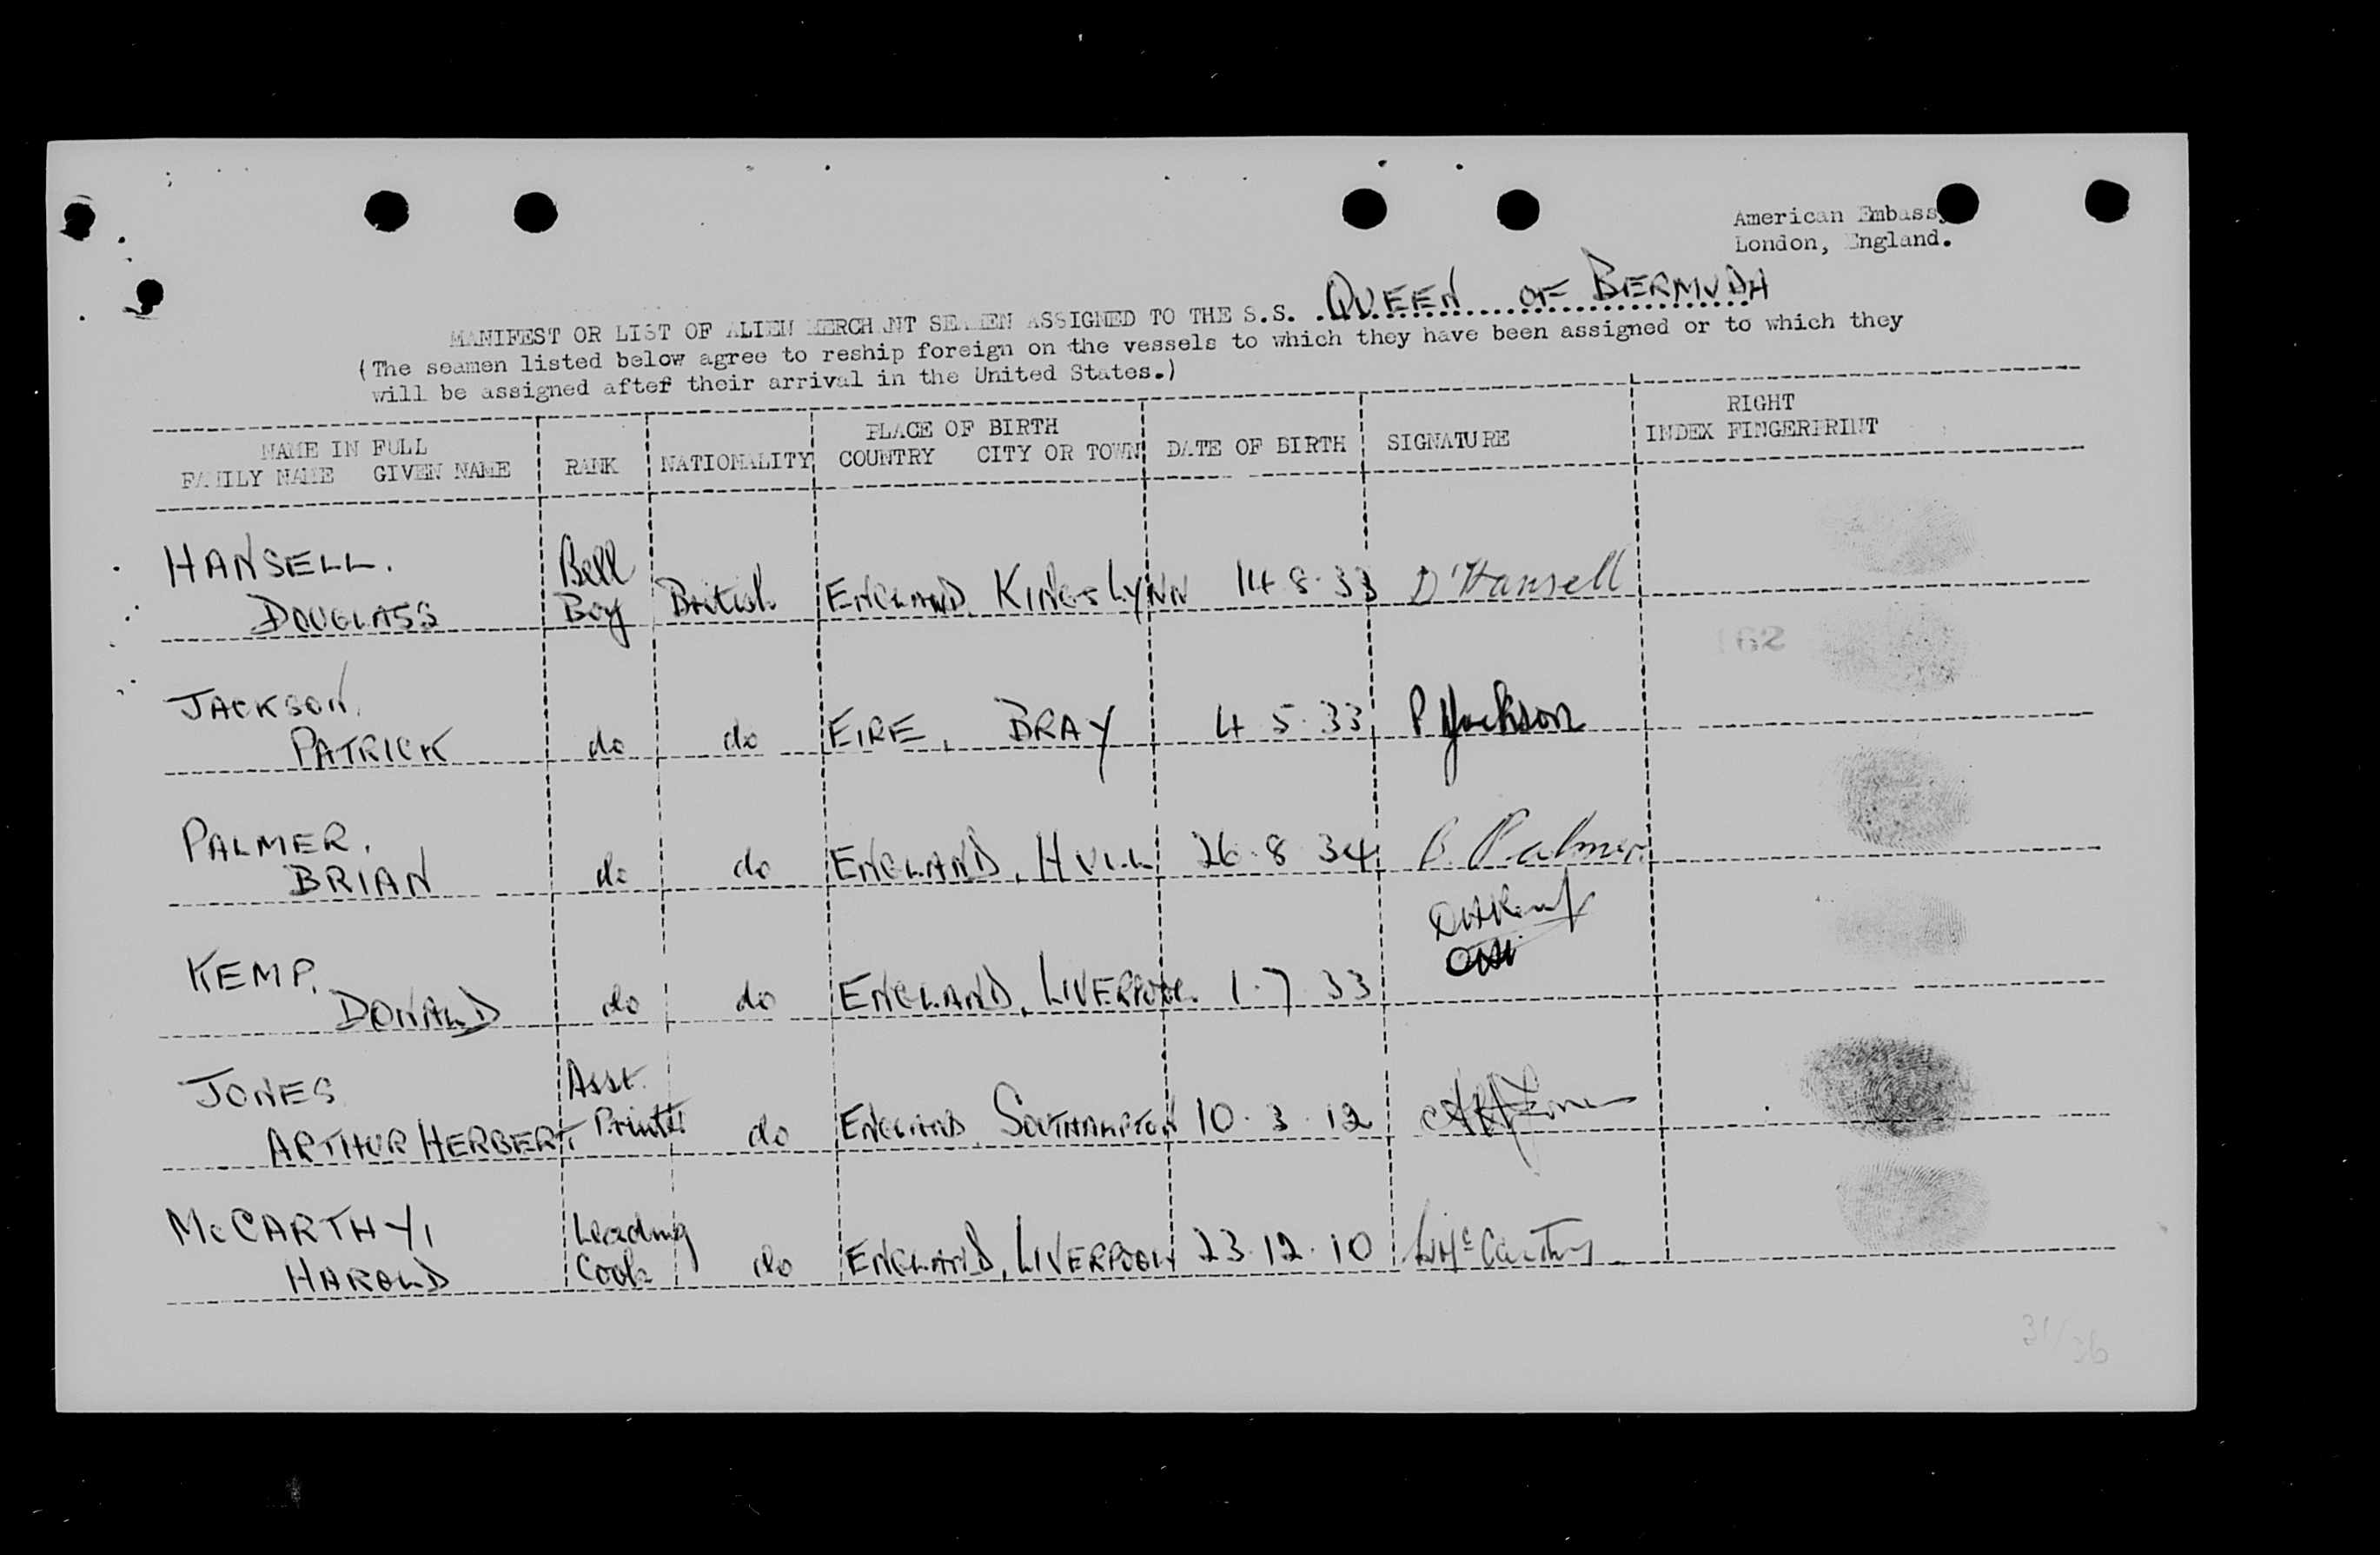 American Embassy
London, England.
MANIFEST OR LIST OF ALIEN MERCHANT SEAMEN ASSIGNED TO THE S.S. QUEEN OF BERMUDA
(The seamen listed below agree to reship foreign on the vessels to which they have been assigned or to which they
will be assigned after their arrival in the United States.)
NAME IN FULL
FAMILY NAME GIVEN NAME
RANK
NATIONALITY
PLACE OF BIRTH
COUNTRY CITY OR TOWN
DATE OF BIRTH
SIGNATURE
RIGHT
INDEX FINGERPRINT
HANSELL.
DOUGLASS
Bell
Boy
British
ENGLAND KINGS LYNN 14 8.33 D'Hansell
JACKSON.
PATRICK do do EIRE, BRAY 4 5.33 P Jackson
PALMER,
BRIAN do do ENGLAND, HULL 26.8 34 B. Palmer
KEMP,
DONALD do do ENGLAND, LIVERPOOL 1.7 33
JONES
ARTHUR HERBERT
Asst.
Printer
do ENGLAND SOUTHAMPTON 10.3.12
McCARTHY,
HAROLD
Leading
Cook
do ENGLAND, LIVERPOOL 23.12.10 H McCarthy
31/36